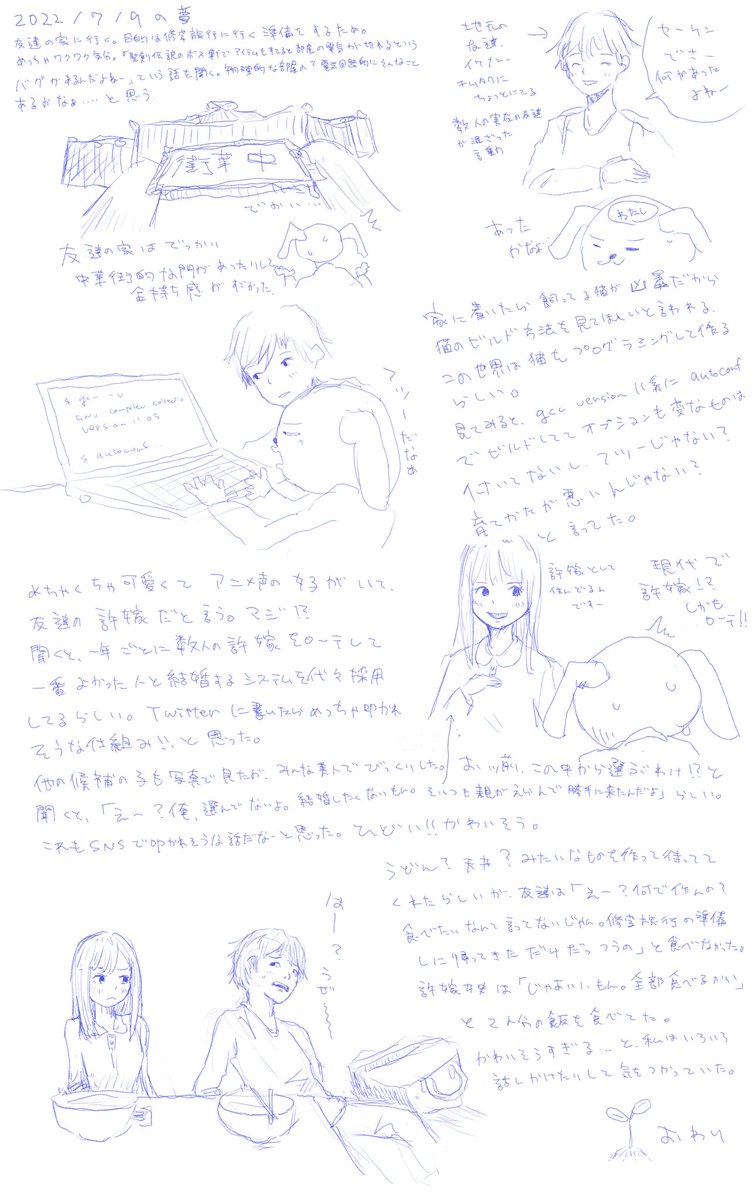 2022/7/9の夢
友達の家に行く。目的は修学旅行に行く準備をするため。
めっちゃワクワク気分。「聖剣伝説のボス戦でアイテムをすてると部屋の電気が切れるという
バグがあるんだよねー」という話を聞く。物理的な部屋の？電気回路的にそんなこと
あるかなぁ…と思う。
地元の
友達。
イケメン。
キムタクに
ちょっとにてる
数人の実在の友達
が混ざった
言動
セーケン
でさー
何かあった
よねー
街華中
でかい…
友達の家はでっかい
中華街的な門があったりして
金持ち感がすごかった。
あった
かなぁ
わたし
家に着いたら飼ってる猫が凶暴だから
猫のビルド方法を見てほしいと言われる。
この世界は猫をプログラミングして作る
らしい。
見てみると、gcc version 11系に autoconf
でビルドしててオプションも変なものは
付いてないし、フツーじゃない？
育てかたが悪いんじゃない？
…と言ってた。
$ gcc -v
GNU compiler collectio
version 11.03
$ autoconf...
フツーだなぁ
めちゃくちゃ可愛くてアニメ声の女子がいて、
友達の許嫁だと言う。マジ!?
聞くと、一年ごとに数人の許嫁をローテして
一番よかった人と結婚するシステムを代々採用
してるらしい。Twitterに書いたらめっちゃ叩かれ
そうな仕組み!!と思った。
許嫁として
住んでるん
ですー
現代で
許嫁!?
しかも
ローテ!!
他の候補の子も写真で見たが、みんな美人でびっくりした。おい お前、この中から選ぶわけ!?と
聞くと、「えー？俺、選んでないよ。結婚したくないもん。そいつも親がえらんで勝手に来たんだよ」らしい。
これもSNSで叩かれそうな話だなーと思った。ひどい!!かわいそう。
うどん？天丼？みたいなものを作って待ってて
くれたらしいが、友達は「えー？何で作んの？
食べたいなんて言ってないじゃん。修学旅行の準備
しに帰ってきただけだっつうの」と食べなかった。
許嫁は「じゃあいいもん。全部食べるからい」
と2人分の飯を食べてた。
かわいそうすぎる…と、私はいろいろ
話しかけたりして気をつかっていた。
はー？うぜ〜〜
おわり